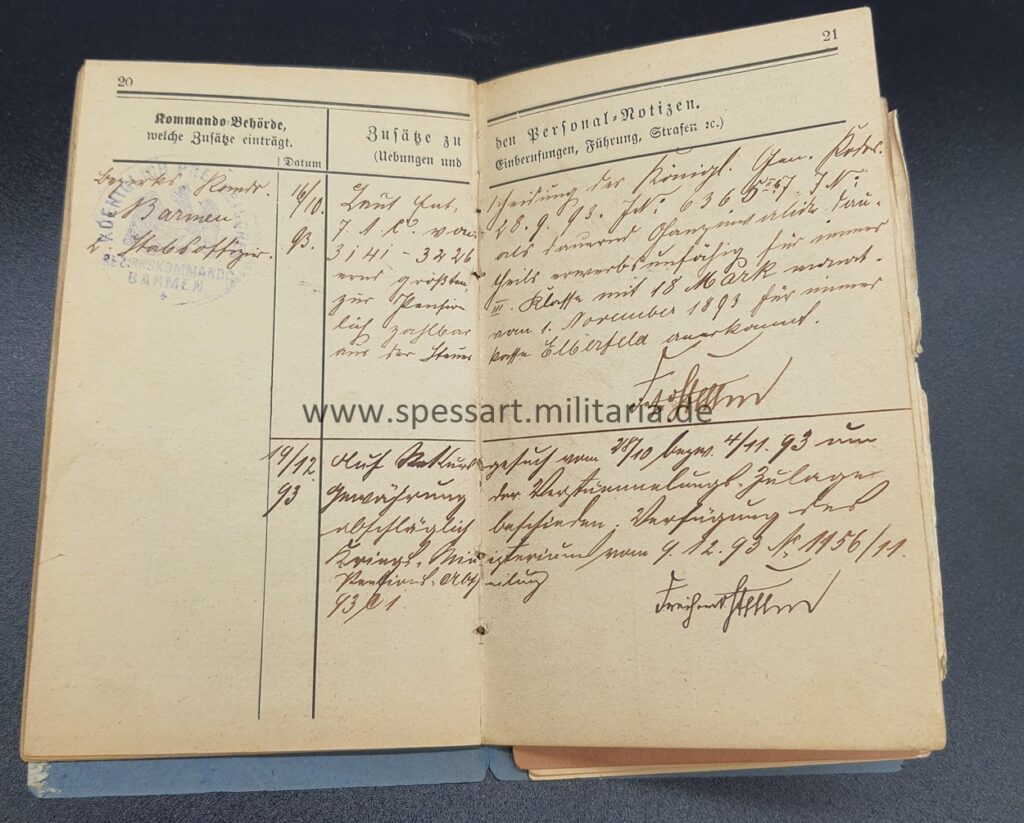 20
Kommando-Behörde,
welche Zusätze einträgt.
Datum
Zusätze zu
(Uebungen und
Bezirks Komdo.
Barmen
2. Stabsoffizier.
KOENIGL. PREUSS.
BEZIRKSKOMMANDO
BARMEN
16/10.
93.
Laut Ent-
7. A. C. vom
3141 - 3226
erns größten
zur Pension
lich zahlbar
aus der Steuer
19/12.
93
Auf Rekurs
Gewährung
abschläglich
Kriegs-Min
Pensions-Abth
93 C 1.
21
den Personal-Notizen.
Einberufungen, Führung, Strafen ꝛc.)
scheidung des Königl. Gen. Kdos.
28. 9. 93. JN: 636 JN:
als dauernd Ganzinvalide
theils erwerbsunfähig für immer
III. Klasse mit 18 Mark monat-
vom 1. November 1893 für immer
kasse Elberfeld anerkannt.
gesuch vom 28/10 bezw. 4/11. 93 um
der Verstümmelungs-Zulage
beschieden. Verfügung des
isterium vom 9. 12. 93 No 1156/11.
eilung
www.spessart.militaria.de